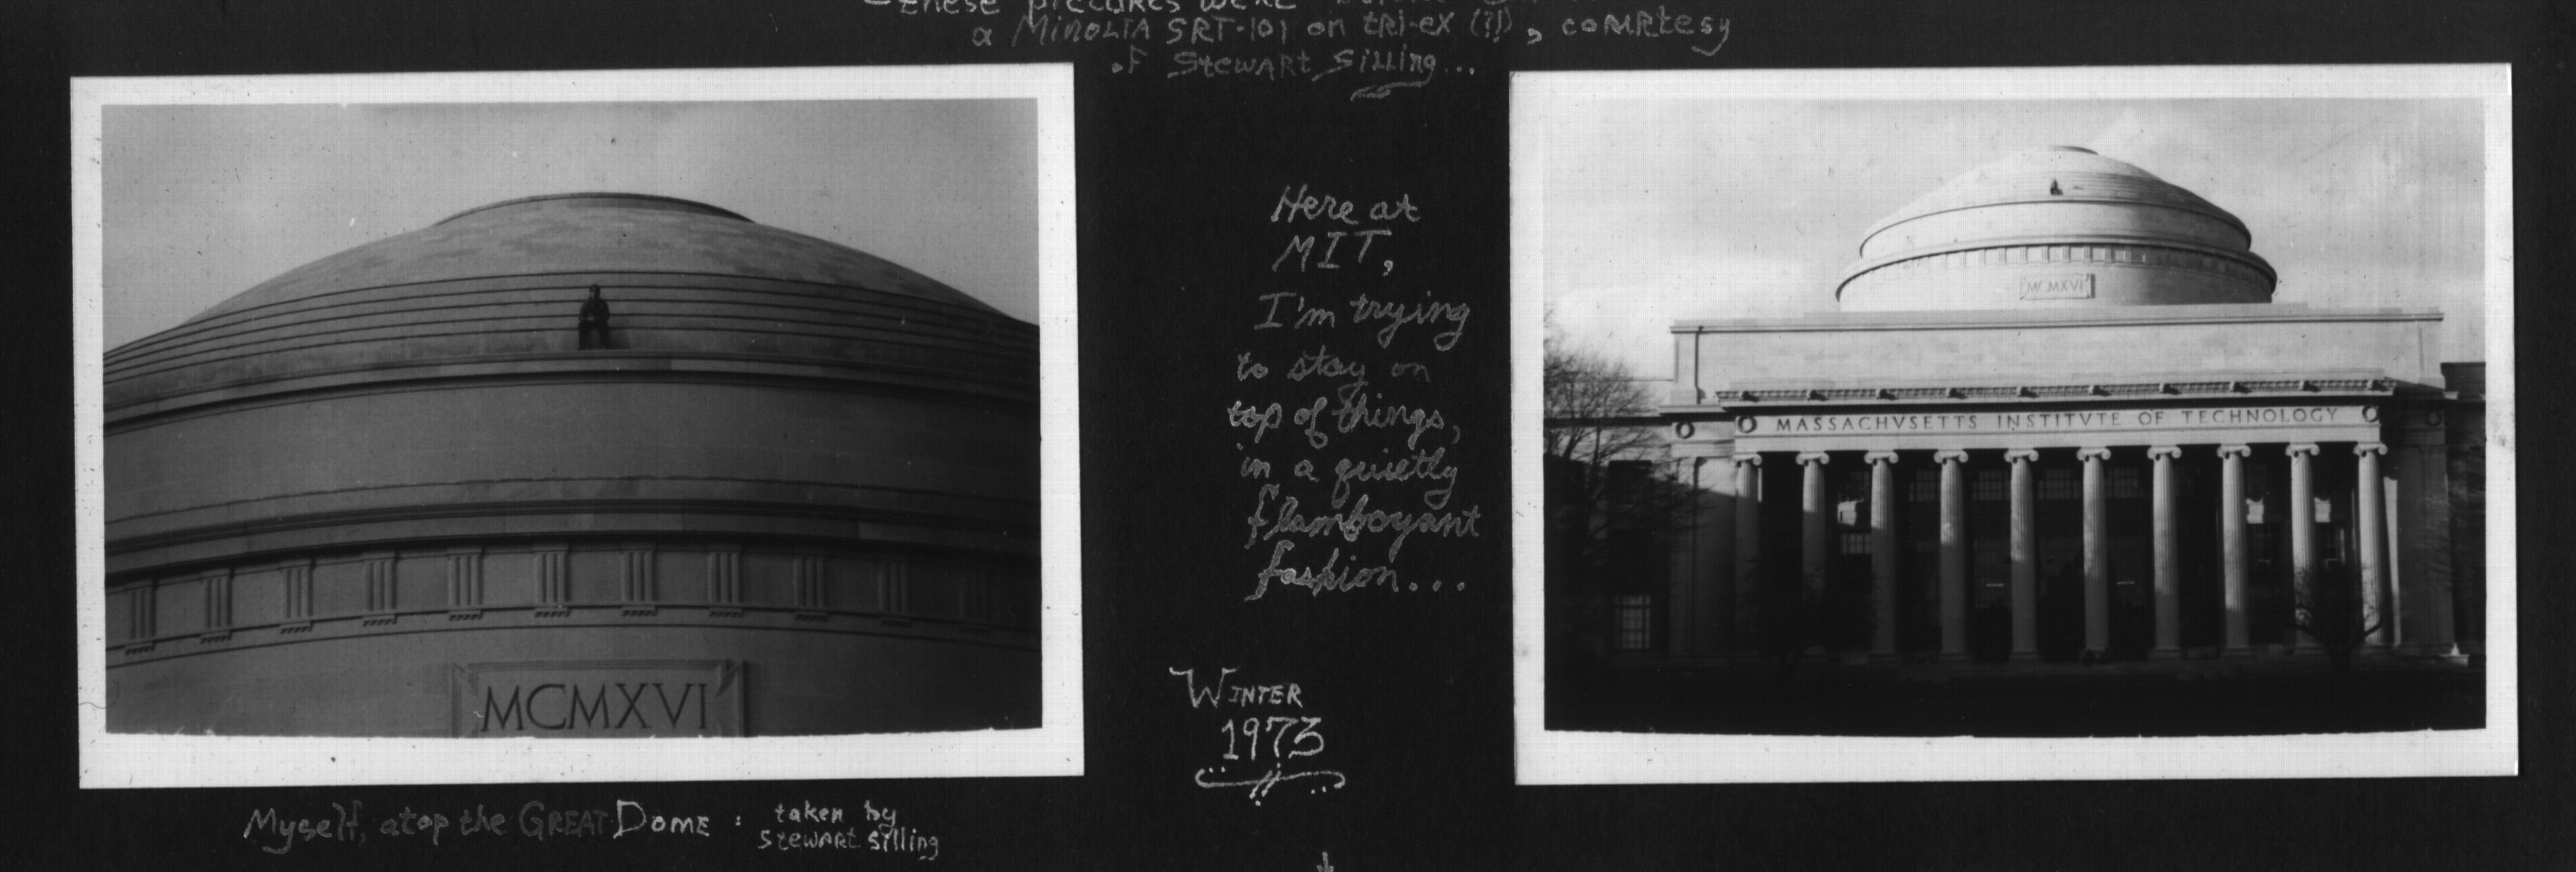 these pictures were
a MINOLTA SRT-101 on tri-ex (?!), courtesy
of Stewart Silling...
Here at
MIT,
I'm trying
to stay on
top of things,
in a quietly
flamboyant
fashion...
WINTER
1973
MCMXVI
Myself, atop the GREAT DOME : taken by
Stewart Silling
MCMXVI
MASSACHVSETTS INSTITVTE OF TECHNOLOGY